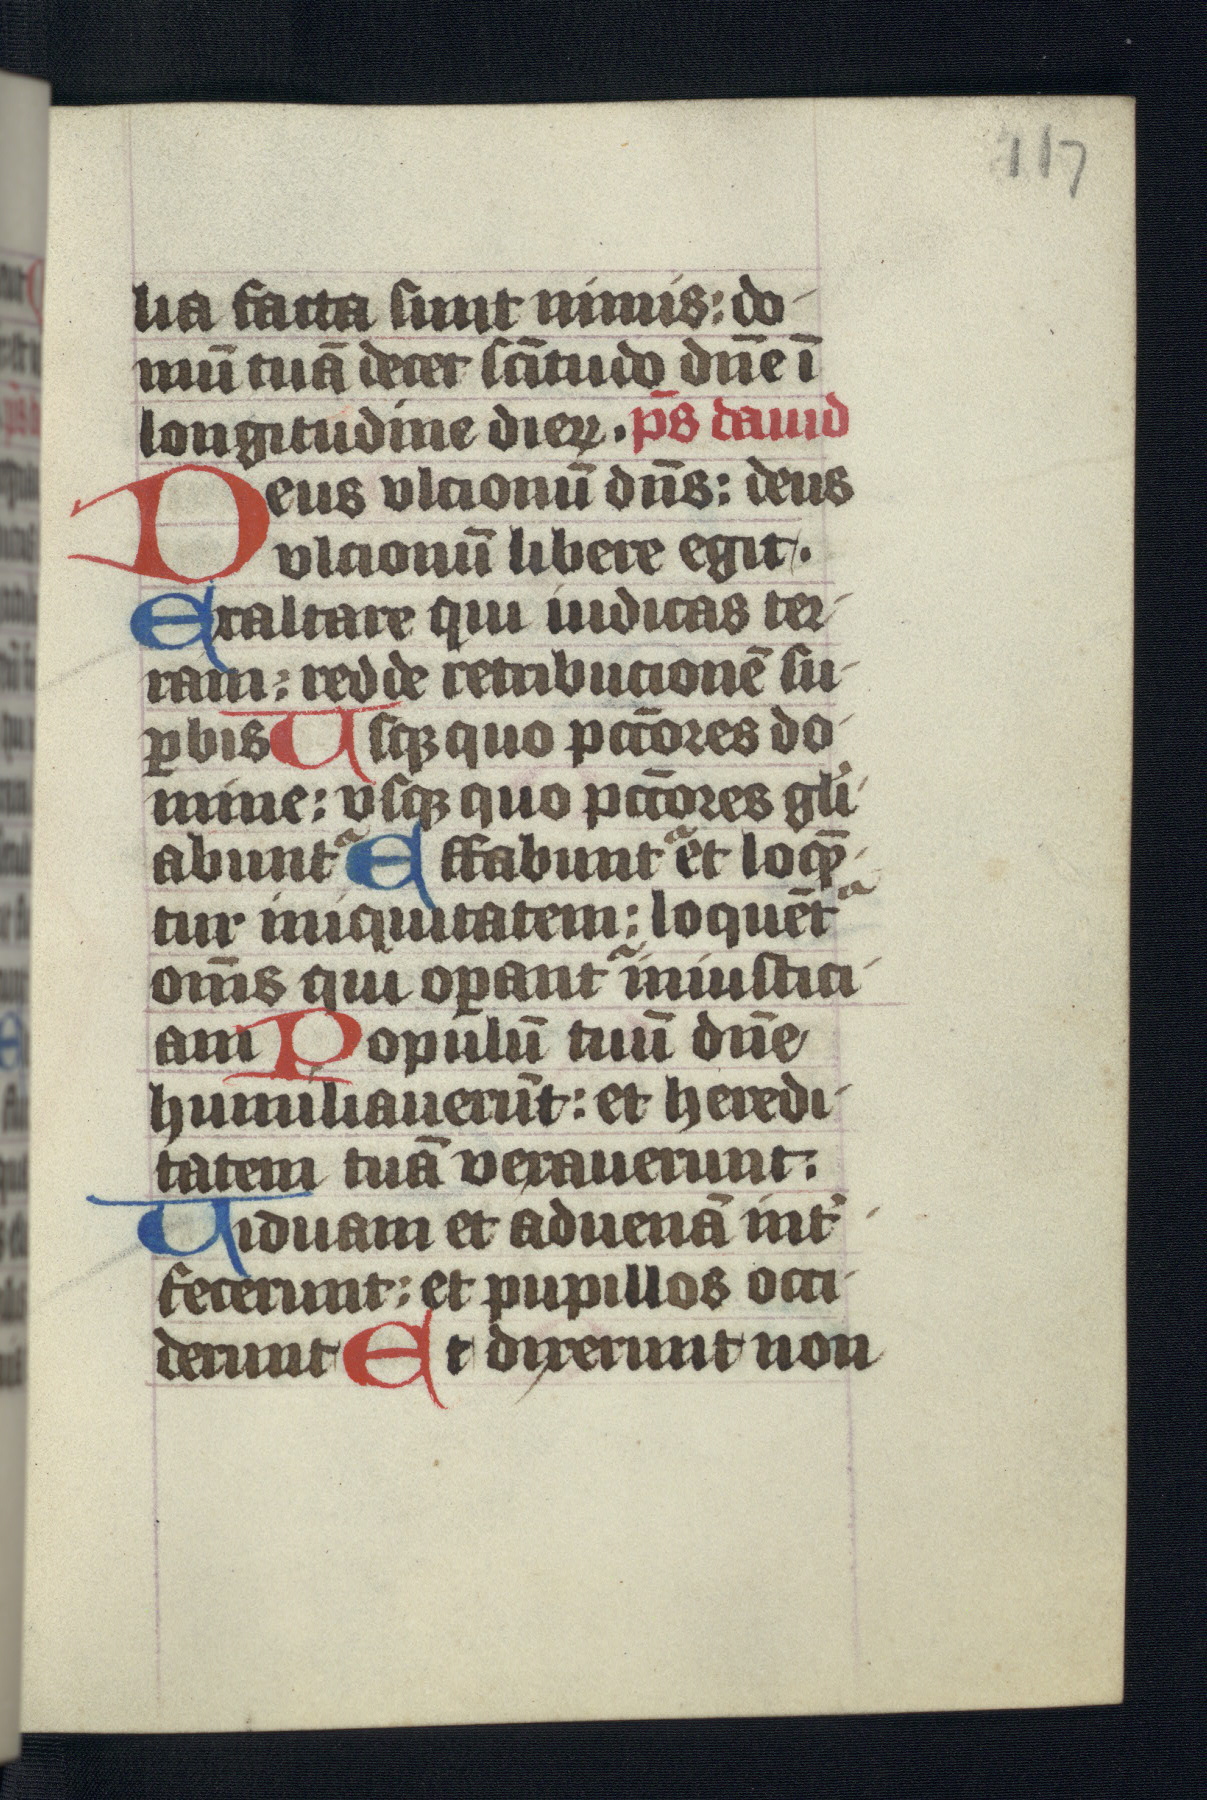 117
lia facta sunt nimis: do-
mū tuā decet sc̄itudo dn̄e ī
longitudine dieꝝ. ps̄ dauid
Deus vlcionū dn̄s: deus
vlcionū libere egit.
Exaltare qui iudicas ter-
ram: redde retribucionē su-
ꝑbis Usqꝫ quo pcc̄ores do-
mine: vsqꝫ quo pcc̄ores gl̄i-
abuntᵃ Effabuntᵃ et loqn̄-
tur iniquitatem: loquēt᷑ᵃ
om̄s qui oꝑantᵃ iniustici-
am Populū tuū dn̄e
humiliauerūt: et heredi-
tatem tuā vexauerunt:
Uiduam et aduenā int̄-
fecerunt: et pupillos occi-
derunt Et dixerunt non